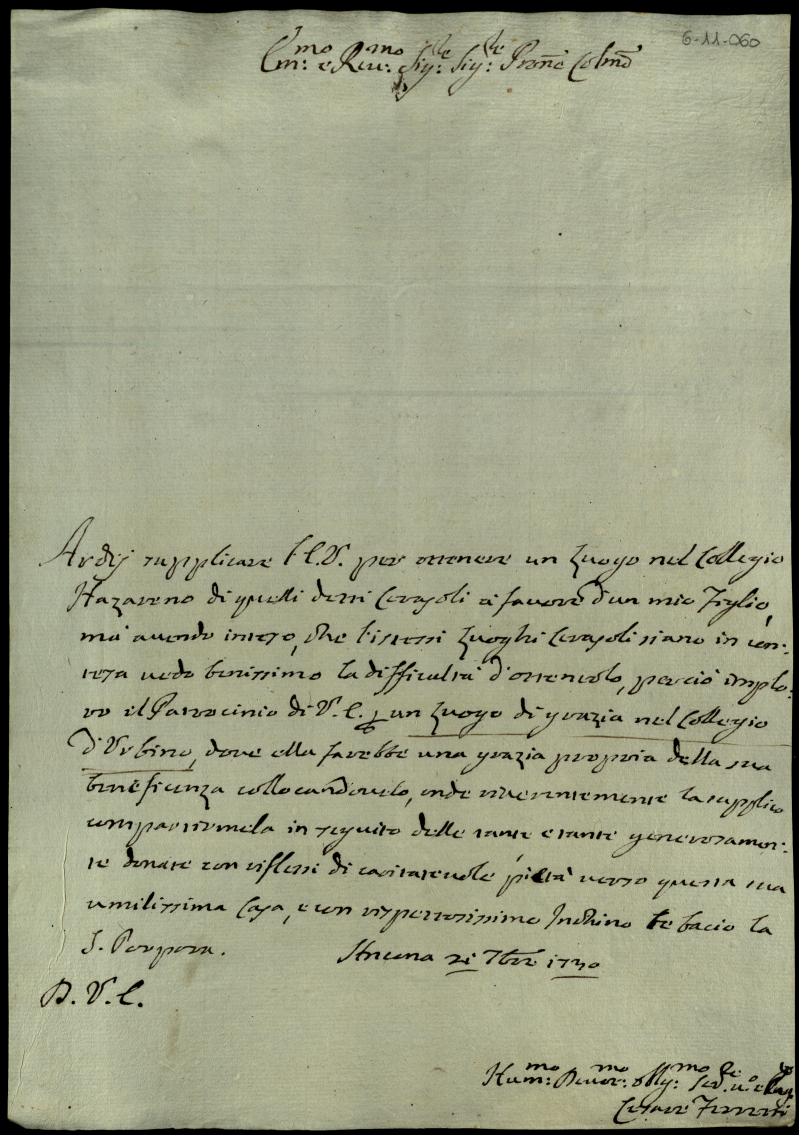 6-11-060
Em:mo e Rev:mo Sig:re Sig:re Pron̄e Colmō
Ardij supplicare l'E.V. per ottenere un Luogo nel Collegio
Nazareno di quelli detti Cerasoli à favore d'un mio Figlio,
mà avendo inteso, che l'istessi Luoghi Cerasoli siano in con-
tesa vedo benissimo la difficultà d'ottenerlo, perciò implo-
ro il Patrocinio di V.E. p un Luogo di grazia nel Collegio
d'Urbino, dove ella farebbe una grazia propria della sua
beneficenza collocandovelo, onde riverentemente la supplico
compartirmela in seguito delle tante e tante generosamen-
te donate con riflessi di caritatevole pietà verso questa sua
umilissima Casa, e con rispettosissimo Inchino le bacio la
S. Porpora. Ancona 21 7bre 1730
D. V. E.
Hum:mo Devot:mo Obbg:mo Ser.re
Cesare Ferretti